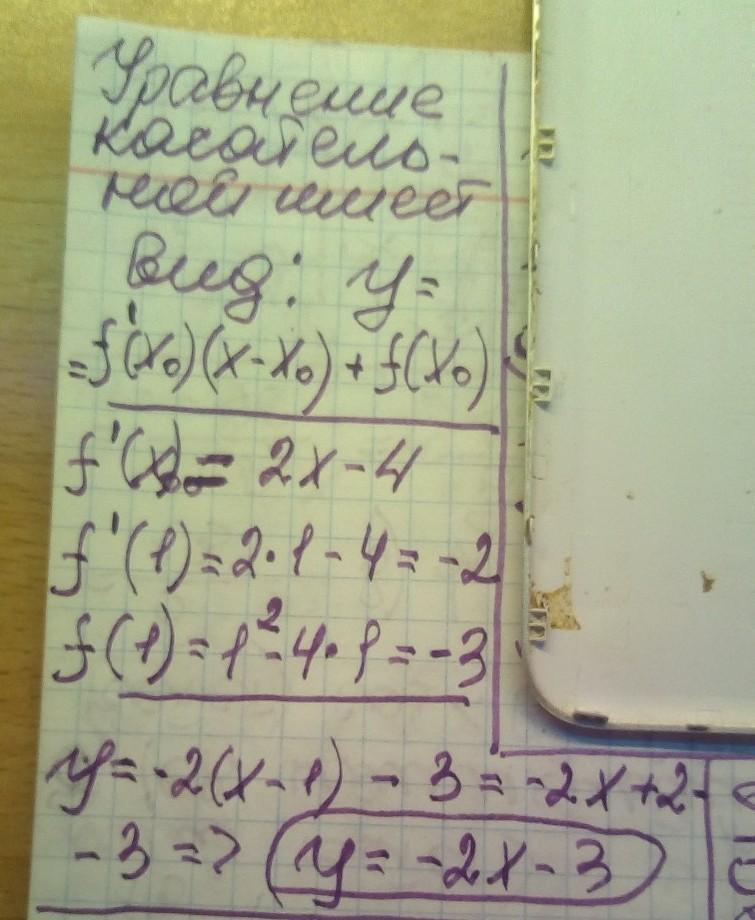 Уравнение
касатель-
ной имеет
вид: y=
=f'(x₀)(x-x₀)+f(x₀)
f'(x)= 2x-4
f'(1)=2·1-4=-2
f(1)=1²-4·1=-3
y=-2(x-1)-3=-2x+2-
-3=> y=-2x-3